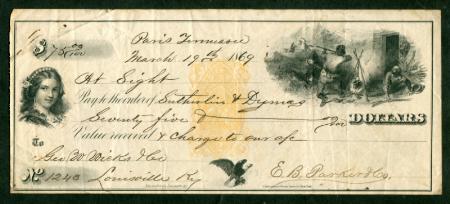 $75 00/100
Paris Tennessee
March 19th 1869
At Sight
Pay to the order of Sutherlin & Dymas
Seventy five no/100 DOLLARS
Value received & charge to our a/c
To Geo. W. Wicks & Co
No 1240 Louisville Ky E. B. Parker & Co.